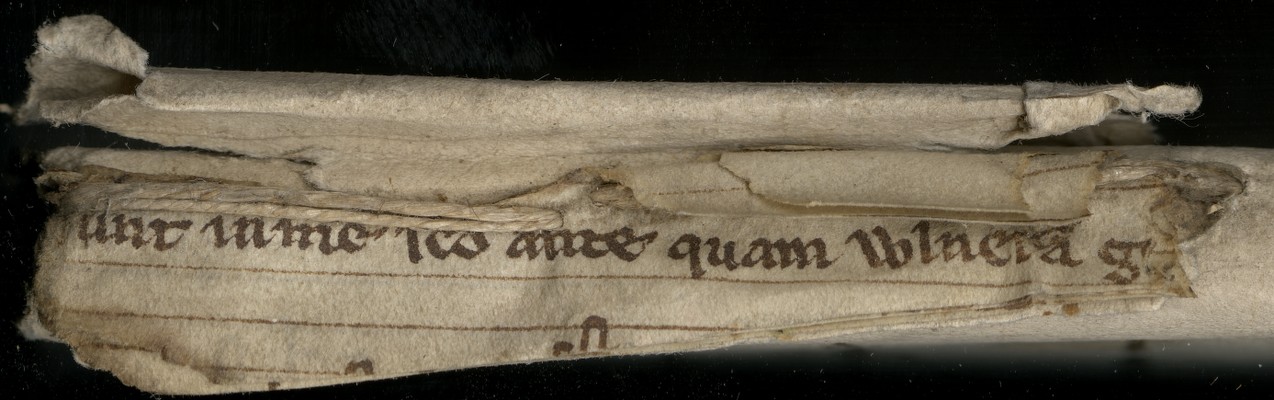 unt in me sco ante quam wlnera g